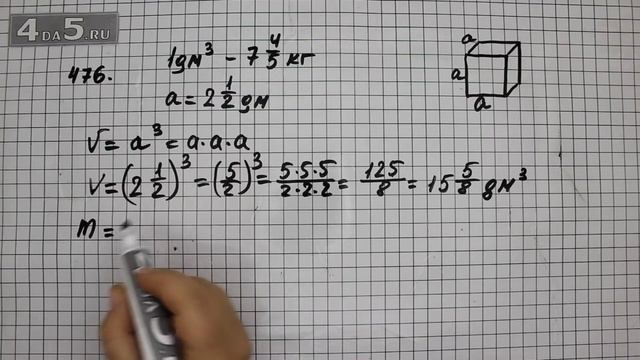 4DA5.RU
476.
1дм³ – 7 4/5 кг
a = 2 1/2 дм
V = a³ = a · a · a
V = (2 1/2)³ = (5/2)³ = 5·5·5/2·2·2 = 125/8 = 15 5/8 дм³
m =
a
a
a